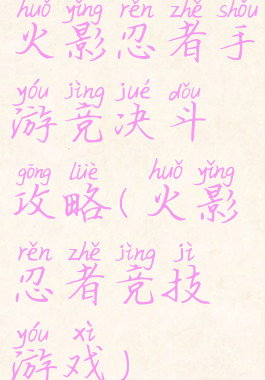 huǒ yǐng rěn zhě shǒu
火影忍者手
yóu jìng jué dǒu
游竞决斗
gōng lüè huǒ yǐng
攻略(火影
rěn zhě jìng jì
忍者竞技
yóu xì
游戏)